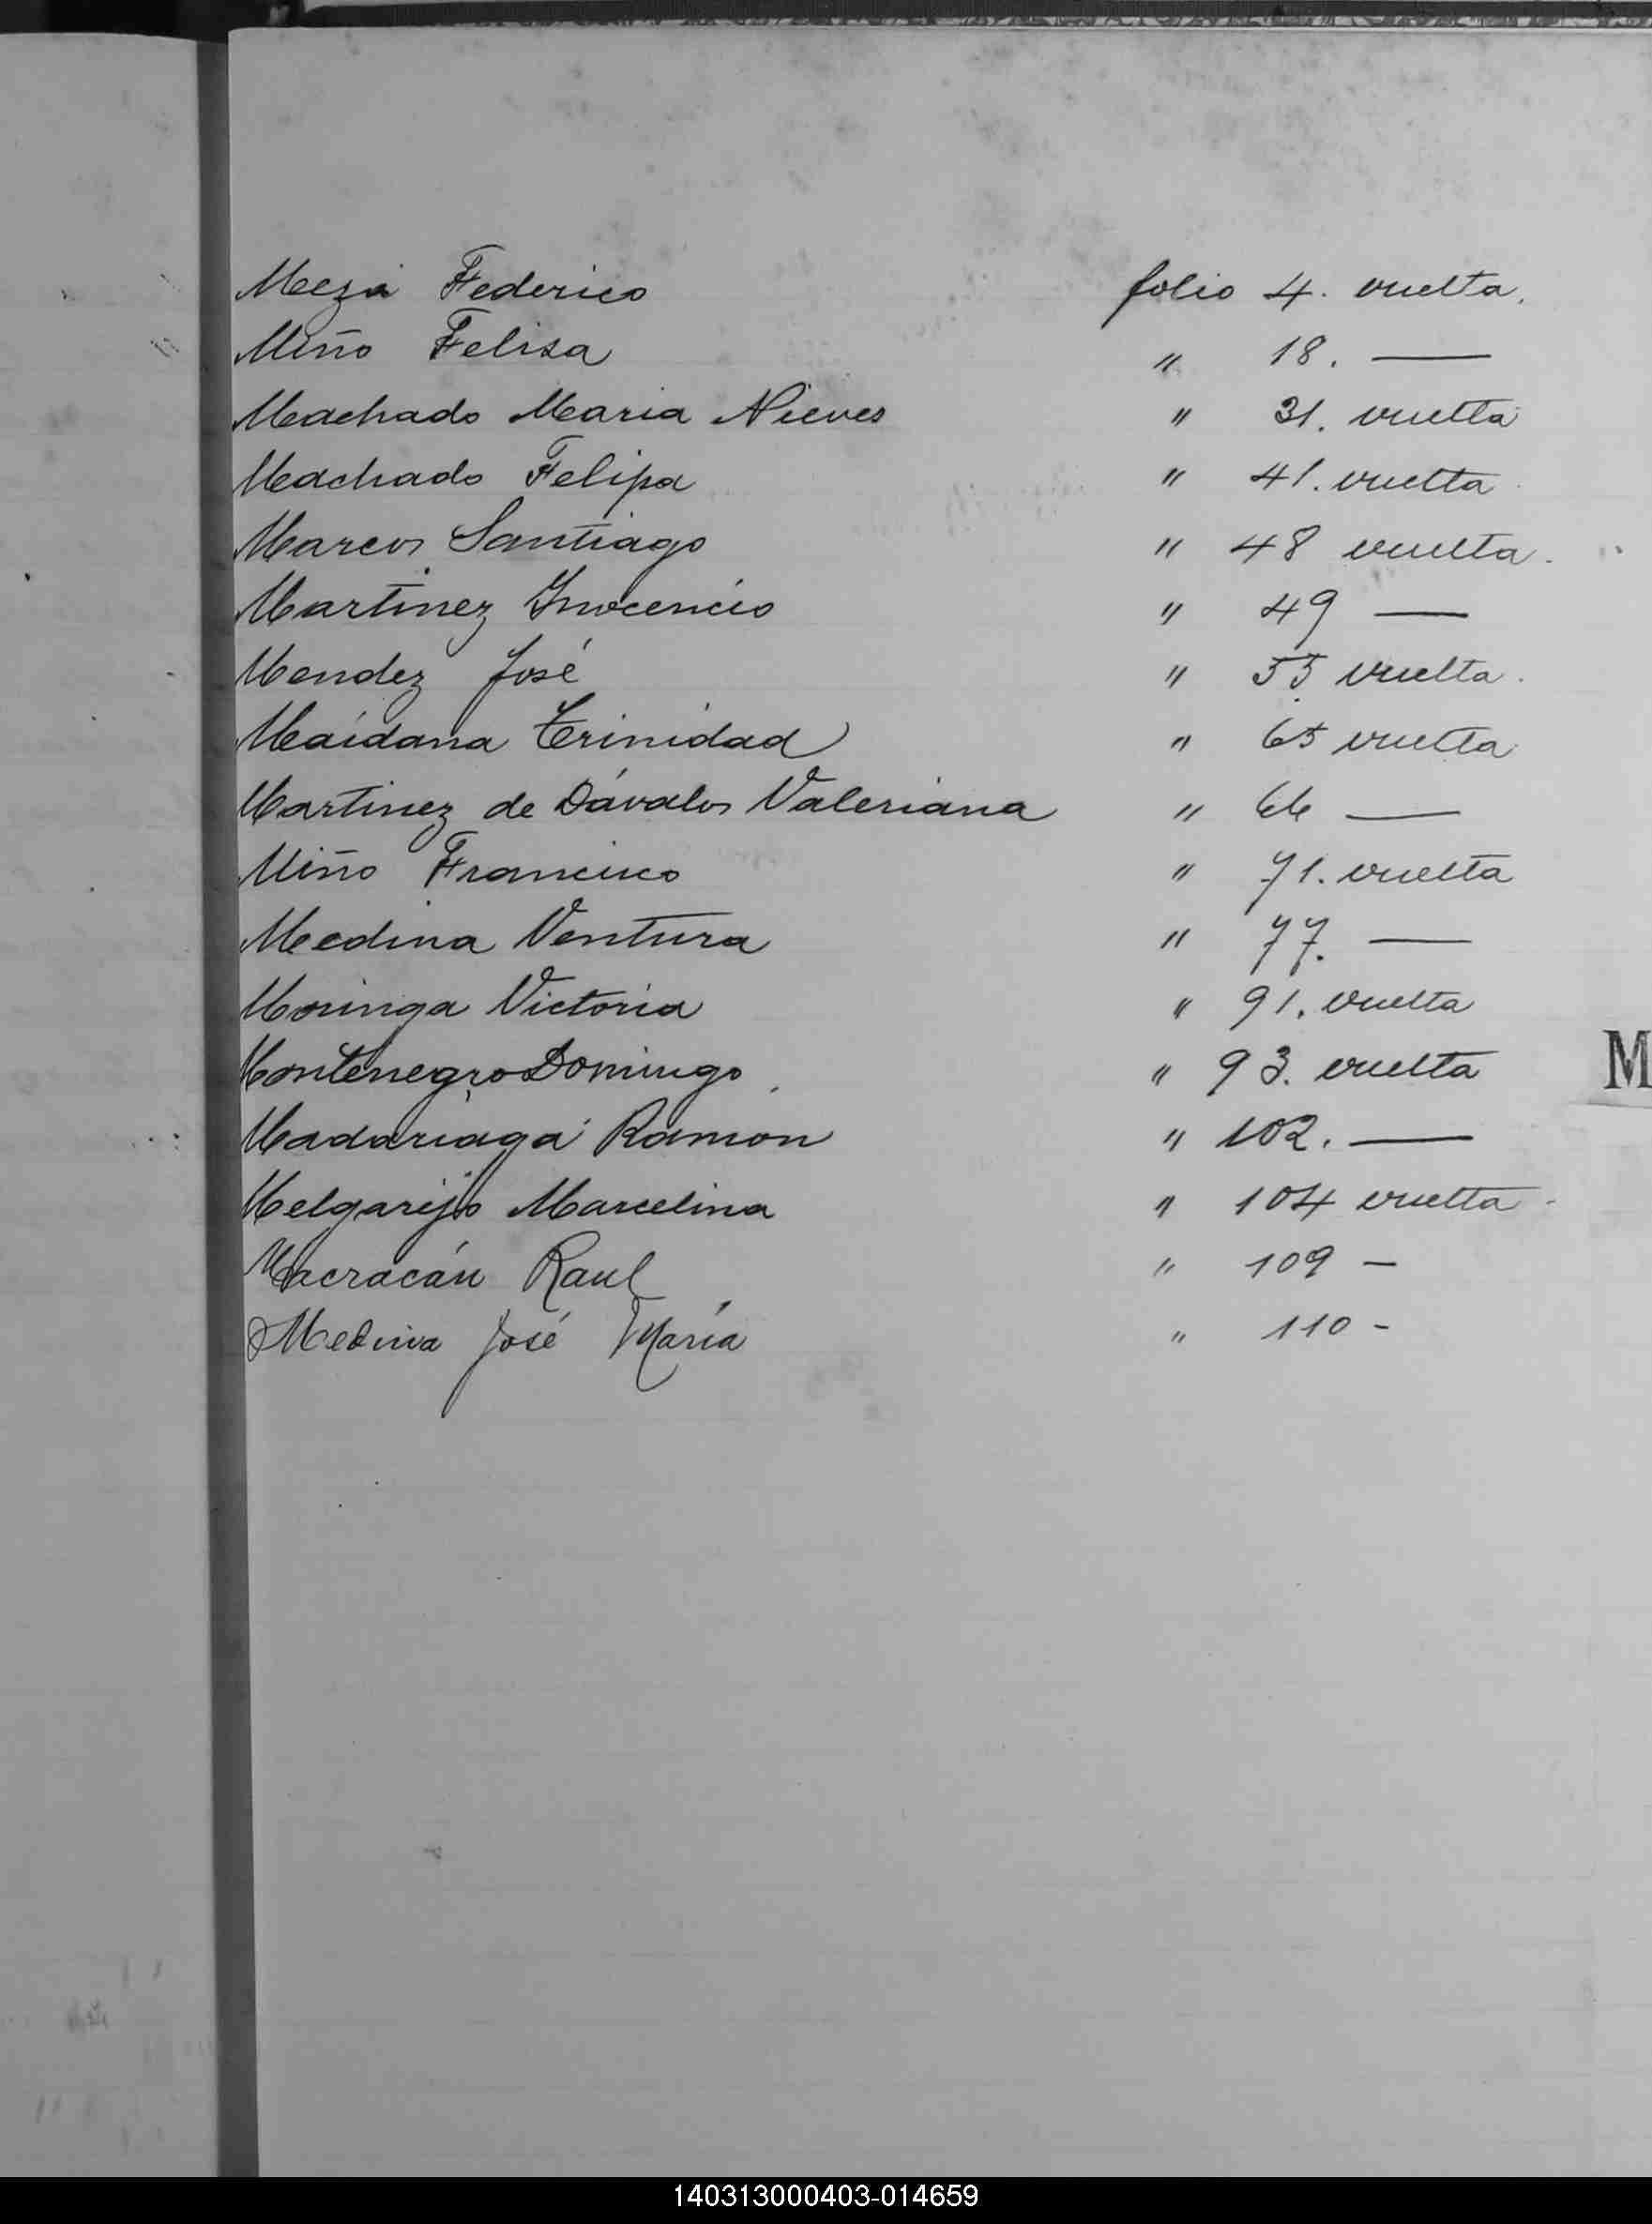 Meza Federico folio 4. vuelta.
Miño Felisa " 18. —
Machado Maria Nieves " 31. vuelta
Machado Felipa " 41. vuelta
Marcos Santiago " 48 vuelta.
Martinez Inocencio " 49 —
Mendez José " 55 vuelta.
Maidana Trinidad " 65 vuelta
Martinez de Dávalos Valeriana " 66 —
Miño Francisco " 71. vuelta
Medina Ventura " 77. —
Moringa Victoria " 91. vuelta
Montenegro Domingo " 93. vuelta
M
Madariaga Ramón " 102. —
Melgarejo Marcelina " 104 vuelta
Macracán Raul " 109 —
Medina José María " 110 -
140313000403-014659